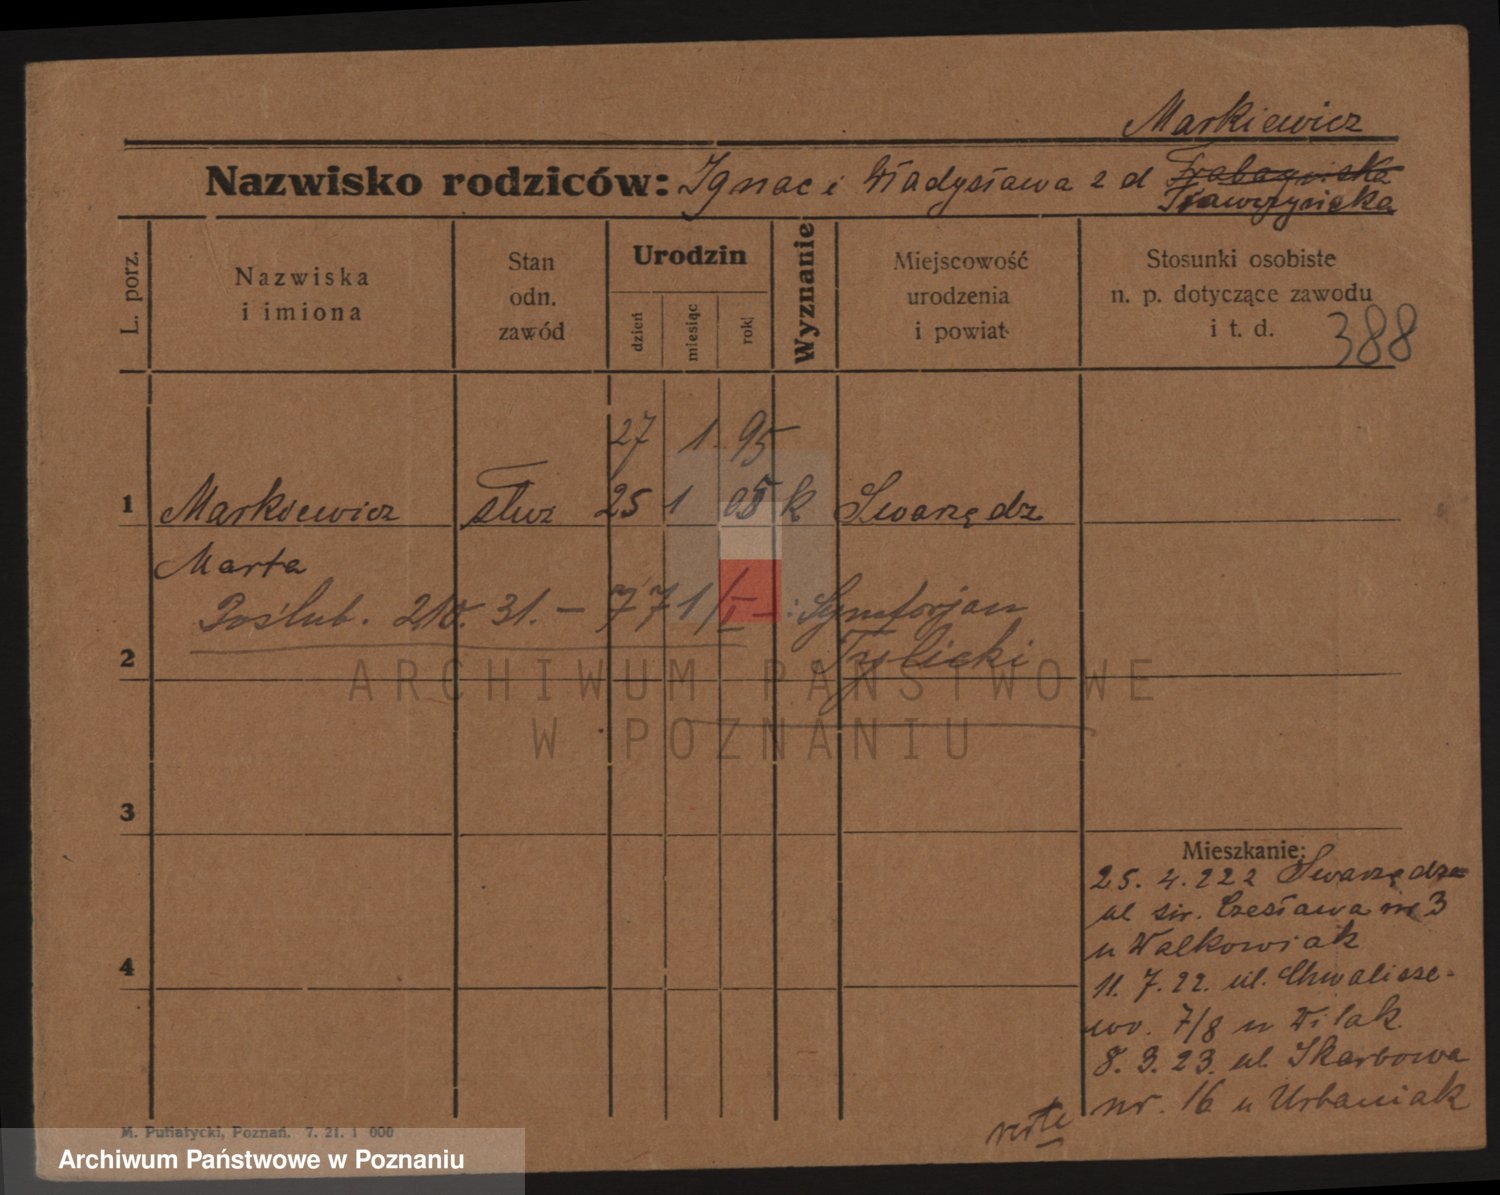 Markiewicz
Nazwisko rodziców: Ignac i Władysława z d
L. porz.
Nazwiska
i imiona
Stan
odn.
zawód
Urodzin
dzień
miesiąc
rok
Wyznanie
Miejscowość
urodzenia
i powiat
Stosunki osobiste
n. p. dotyczące zawodu
i t. d.
388
27 1 95
1 Markiewicz służ 25 1 k Swarzędz
Marta
Poślub. 31. – : Symforjan
2
3
Mieszkanie:
25. 4. 222 Swarzędza
ul św. Czesława nr 3
u Walkowiak
4
11. 7. 22. ul. Chwalisze-
wo. 7/8 u Wilak
8. 3. 23. ul. Skarbowa
nr. 16 u Urbaniak
verte
M. Putiatycki, Poznań. 7. 21. 1 000
ARCHIWUM PAŃSTWOWE
W POZNANIU
Archiwum Państwowe w Poznaniu